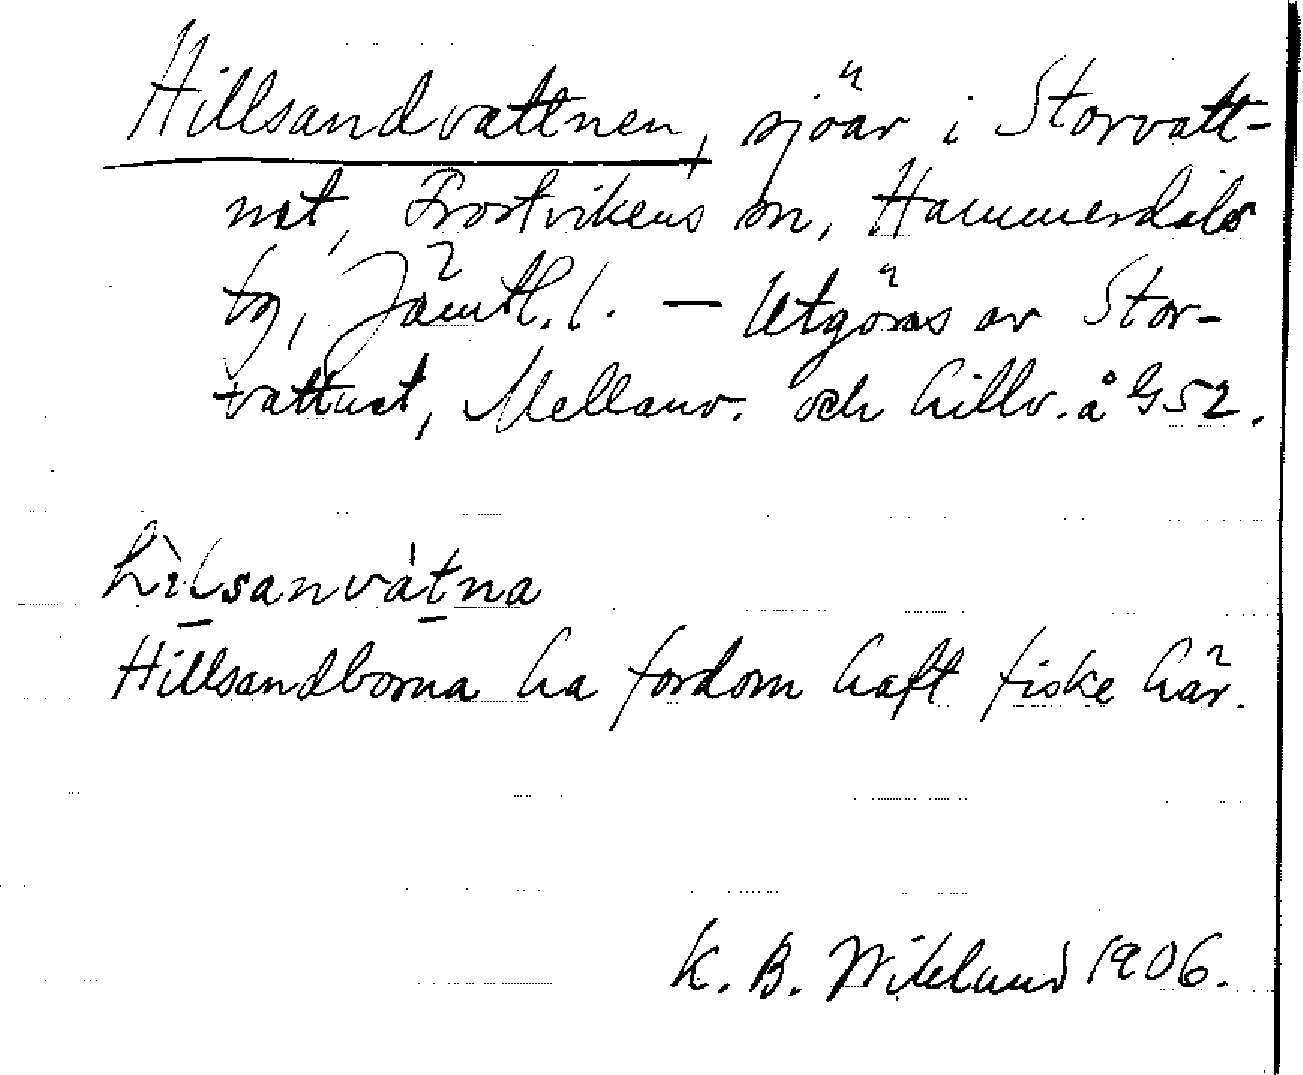 Hillsandvattnen, sjöar i Storvatt-
net, Frostvikens sn, Hammerdals
tg, Jämtl. l. — Utgöres av Stor-
vattnet, Mellanv. och Lillv. å G 52.
hìlsanvàtna
Hillsandborna ha fordom haft fiske här.
K. B. Wiklund 1906.